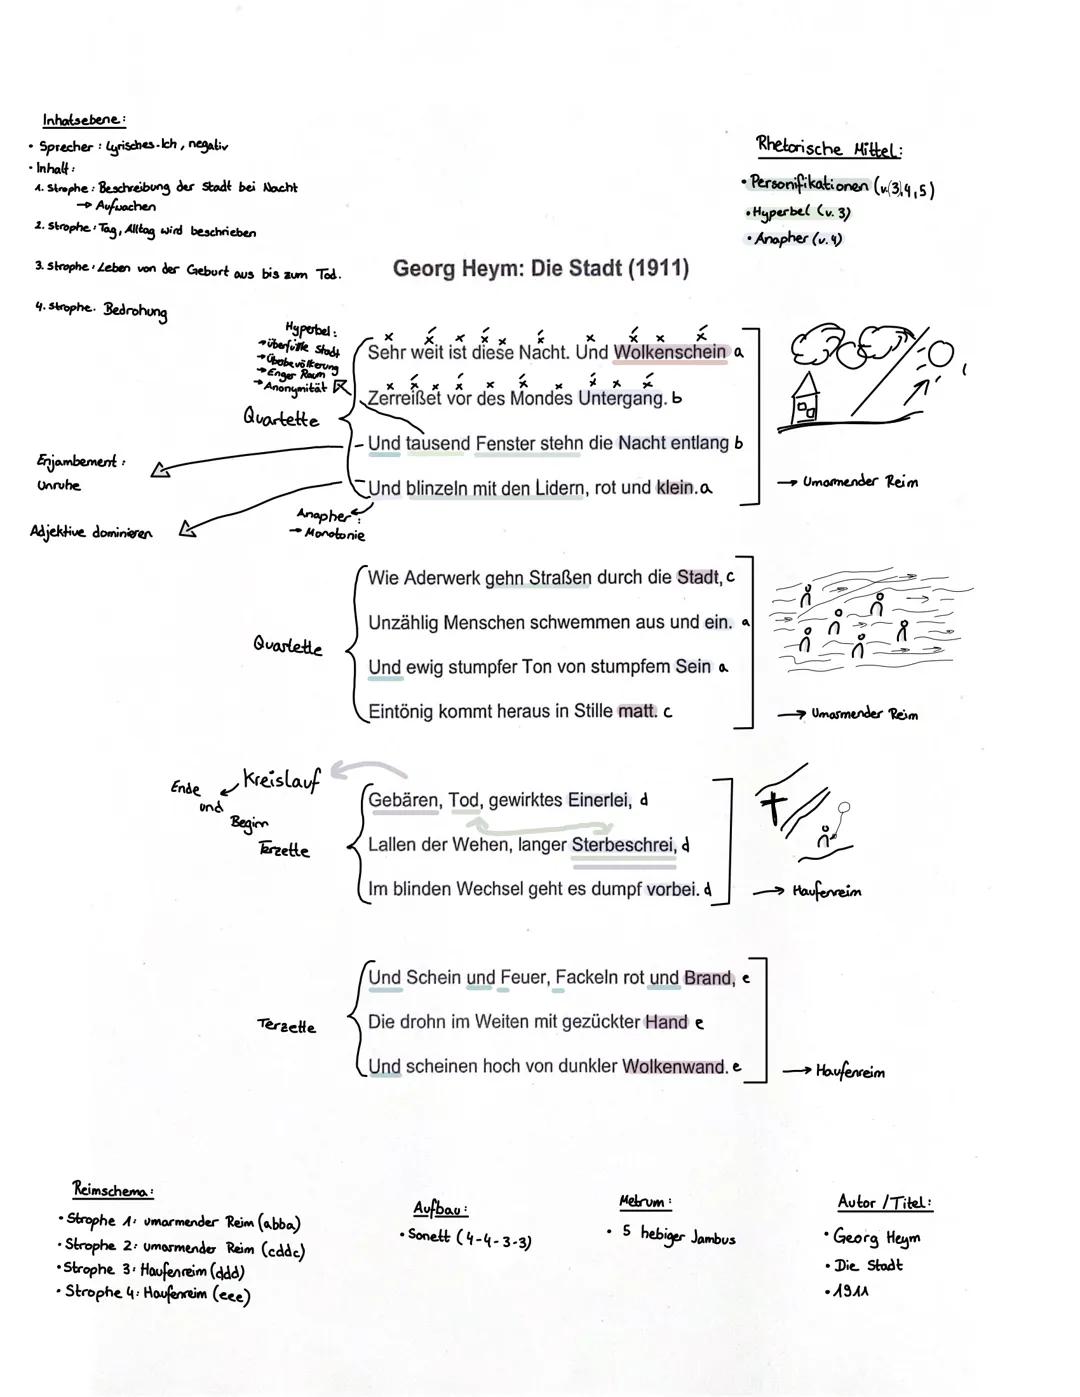 Inhatsebene:
• Sprecher: Lyrisches-Ich, negativ
• Inhalt:
1. Strophe: Beschreibung der Stadt bei Nacht
→ Aufwachen
2. Strophe: Tag, Alltag wird beschrieben
3. Strophe: Leben von der Geburt aus bis zum Tod.
4. Strophe. Bedrohung
Rhetorische Mittel:
• Personifikationen (v.(3),4,5)
• Hyperbel (v. 3)
• Anapher (v. 4)
Georg Heym: Die Stadt (1911)
Hyperbel:
→ überfüllte Stadt
→ Überbevölkerung
→ Enger Raum
→ Anonymität
Quartette
Sehr weit ist diese Nacht. Und Wolkenschein a
Zerreißet vor des Mondes Untergang. b
Und tausend Fenster stehn die Nacht entlang b
Und blinzeln mit den Lidern, rot und klein. a
→ Umarmender Reim
Enjambement:
Unruhe
Adjektive dominieren
Anapher:
→ Monotonie
Quartette
Wie Aderwerk gehn Straßen durch die Stadt, c
Unzählig Menschen schwemmen aus und ein. a
Und ewig stumpfer Ton von stumpfem Sein a
Eintönig kommt heraus in Stille matt. c
→ Umarmender Reim
Kreislauf
Ende
und
Beginn
Terzette
Gebären, Tod, gewirktes Einerlei, d
Lallen der Wehen, langer Sterbeschrei, d
Im blinden Wechsel geht es dumpf vorbei. d
→ Haufenreim
Terzette
Und Schein und Feuer, Fackeln rot und Brand, e
Die drohn im Weiten mit gezückter Hand e
Und scheinen hoch von dunkler Wolkenwand. e
→ Haufenreim
Reimschema:
• Strophe 1: umarmender Reim (abba)
• Strophe 2: umarmender Reim (cddc)
• Strophe 3: Haufenreim (ddd)
• Strophe 4: Haufenreim (eee)
Aufbau:
• Sonett (4-4-3-3)
Metrum:
• 5 hebiger Jambus
Autor / Titel:
• Georg Heym
• Die Stadt
• 1911